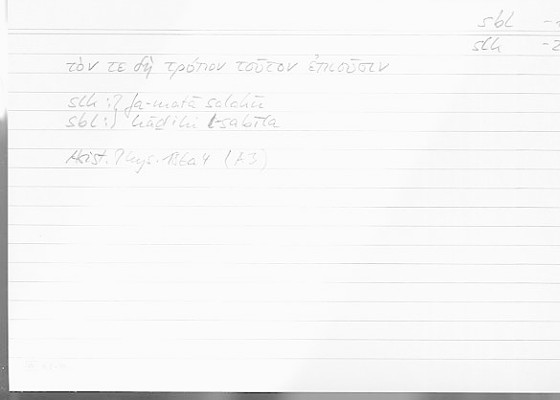 sbl -
slk -2
τόν τε δὴ τρόπον τοῦτον ἐπιοῦσιν
slk :) fa-matā salakū
sbl :) hāḏihi l-sabīla
Arist. Phys. 186a4 (A3)